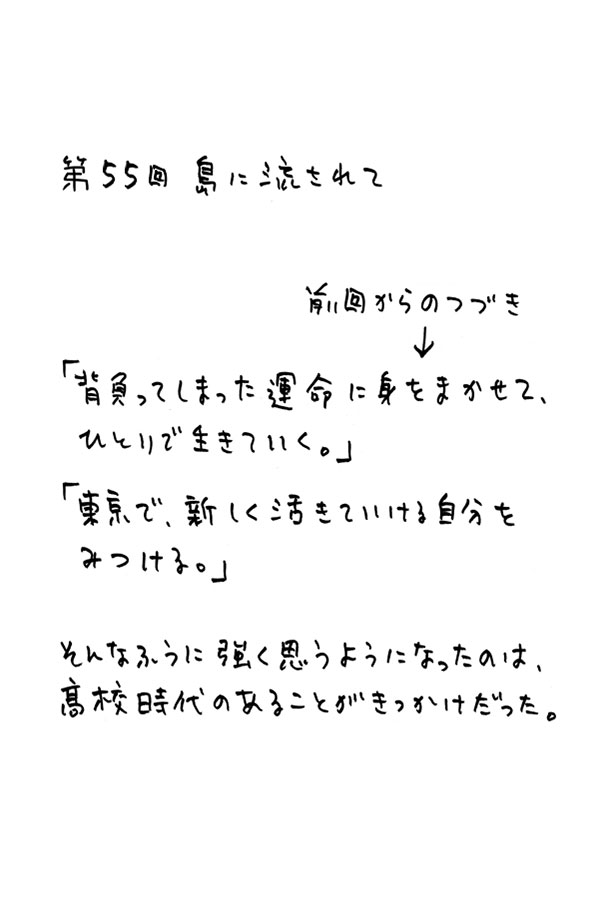 第55回 島に流されて
前回からのつづき
↓
「背負ってしまった運命に身をまかせて、
ひとりで生きていく。」
「東京で、新しく活きていける自分を
みつける。」
そんなふうに強く思うようになったのは、
高校時代のあることがきっかけだった。